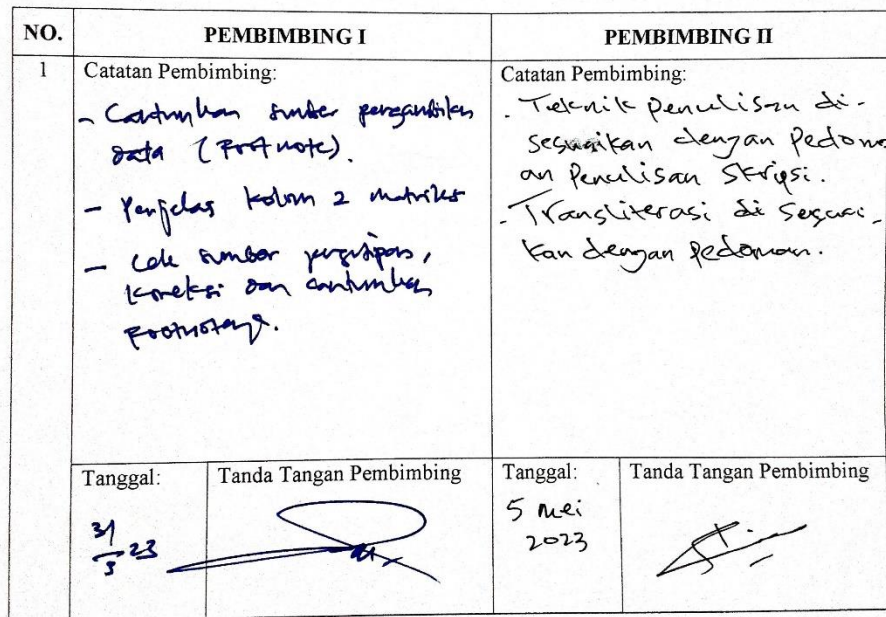 NO.
PEMBIMBING I
PEMBIMBING II
1
Catatan Pembimbing:
- Cantumkan sumber pengambilan
data (Footnote).
- Penjelas kolom 2 matriks
- Cek sumber pengutipan,
koreksi dan cantumkan
Footnotenya.
Catatan Pembimbing:
- Teknik penulisan di-
sesuaikan dengan Pedom
an Penulisan Skripsi.
- Transliterasi di sesuai-
kan dengan pedoman.
Tanggal:
31/3 23
Tanda Tangan Pembimbing
Tanggal:
5 Mei
2023
Tanda Tangan Pembimbing